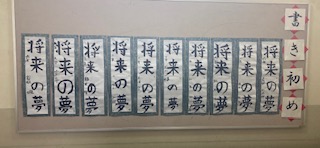 書き初め
将来の夢
将来の夢
将来の夢
将来の夢
将来の夢
将来の夢
将来の夢
将来の夢
将来の夢
将来の夢